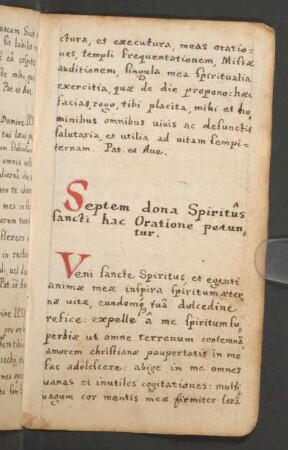 ctura, et executura, meas oratio-
nes, templi frequentationem, Missæ
auditionem, singula mea spiritualia
exercitia, quæ de die propono: hæc
facias, rogo, tibi placita, mihi et ho
minibus omnibus vivis ac defunctis
salutaria, et utilia ad vitam sempi-
ternam. Pat. et Ave.
Septem dona Spiritûs
sancti hac Oratione petun-
tur.
Veni sancte Spiritus, et egenti
animæ meæ inspira spiritum æter-
næ vitæ, eundemq tuâ dulcedine
refice: expelle â me spiritum su
perbiæ ut omne terrenum contemnā,
amorem christianæ paupertatis in me
fac adolescere: abige in me omnes
vanas et inutiles cogitationes: multi
vagum cor mentis meæ firmiter